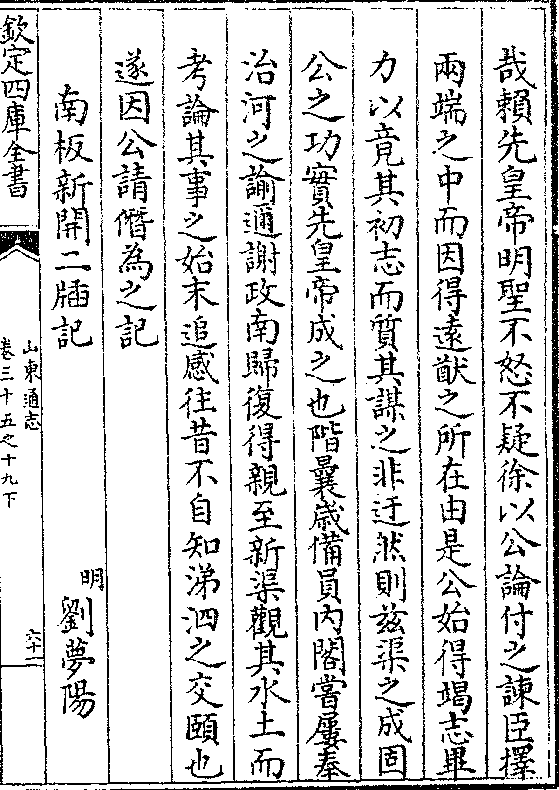 哉賴先皇帝明聖不怒不疑徐以公論付之諫臣擇
兩端之中而因得遠猷之所在由是公始得竭志畢
力以竟其初志而質其謀之非迂然則兹渠之成固
公之功實先皇帝成之也階曩歲備員内閣嘗屢奉
治河之諭適謝政南歸復得親至新渠觀其水土而
考論其事之始末追感往昔不自知涕泗之交頤也
遂因公請僭為之記
南板新開二牐記
明劉夢陽
欽定四庫全書
山東通志
卷三十五之十九下
六十二